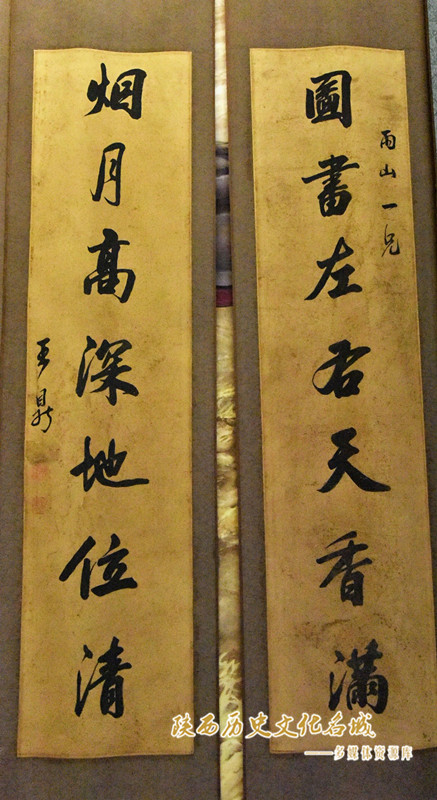 雨山一兄
圖書左右天香滿
烟月高深地位清
王鼎
陕西历史文化名城
——多媒体资源库